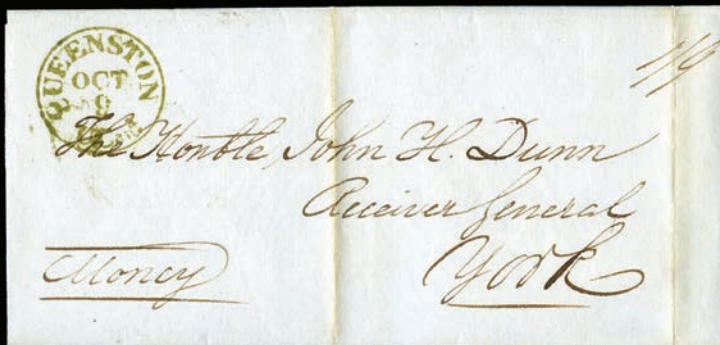 QUEENSTON
OCT
9
1/9
The Honble John H. Dunn
Receiver General
York
Money